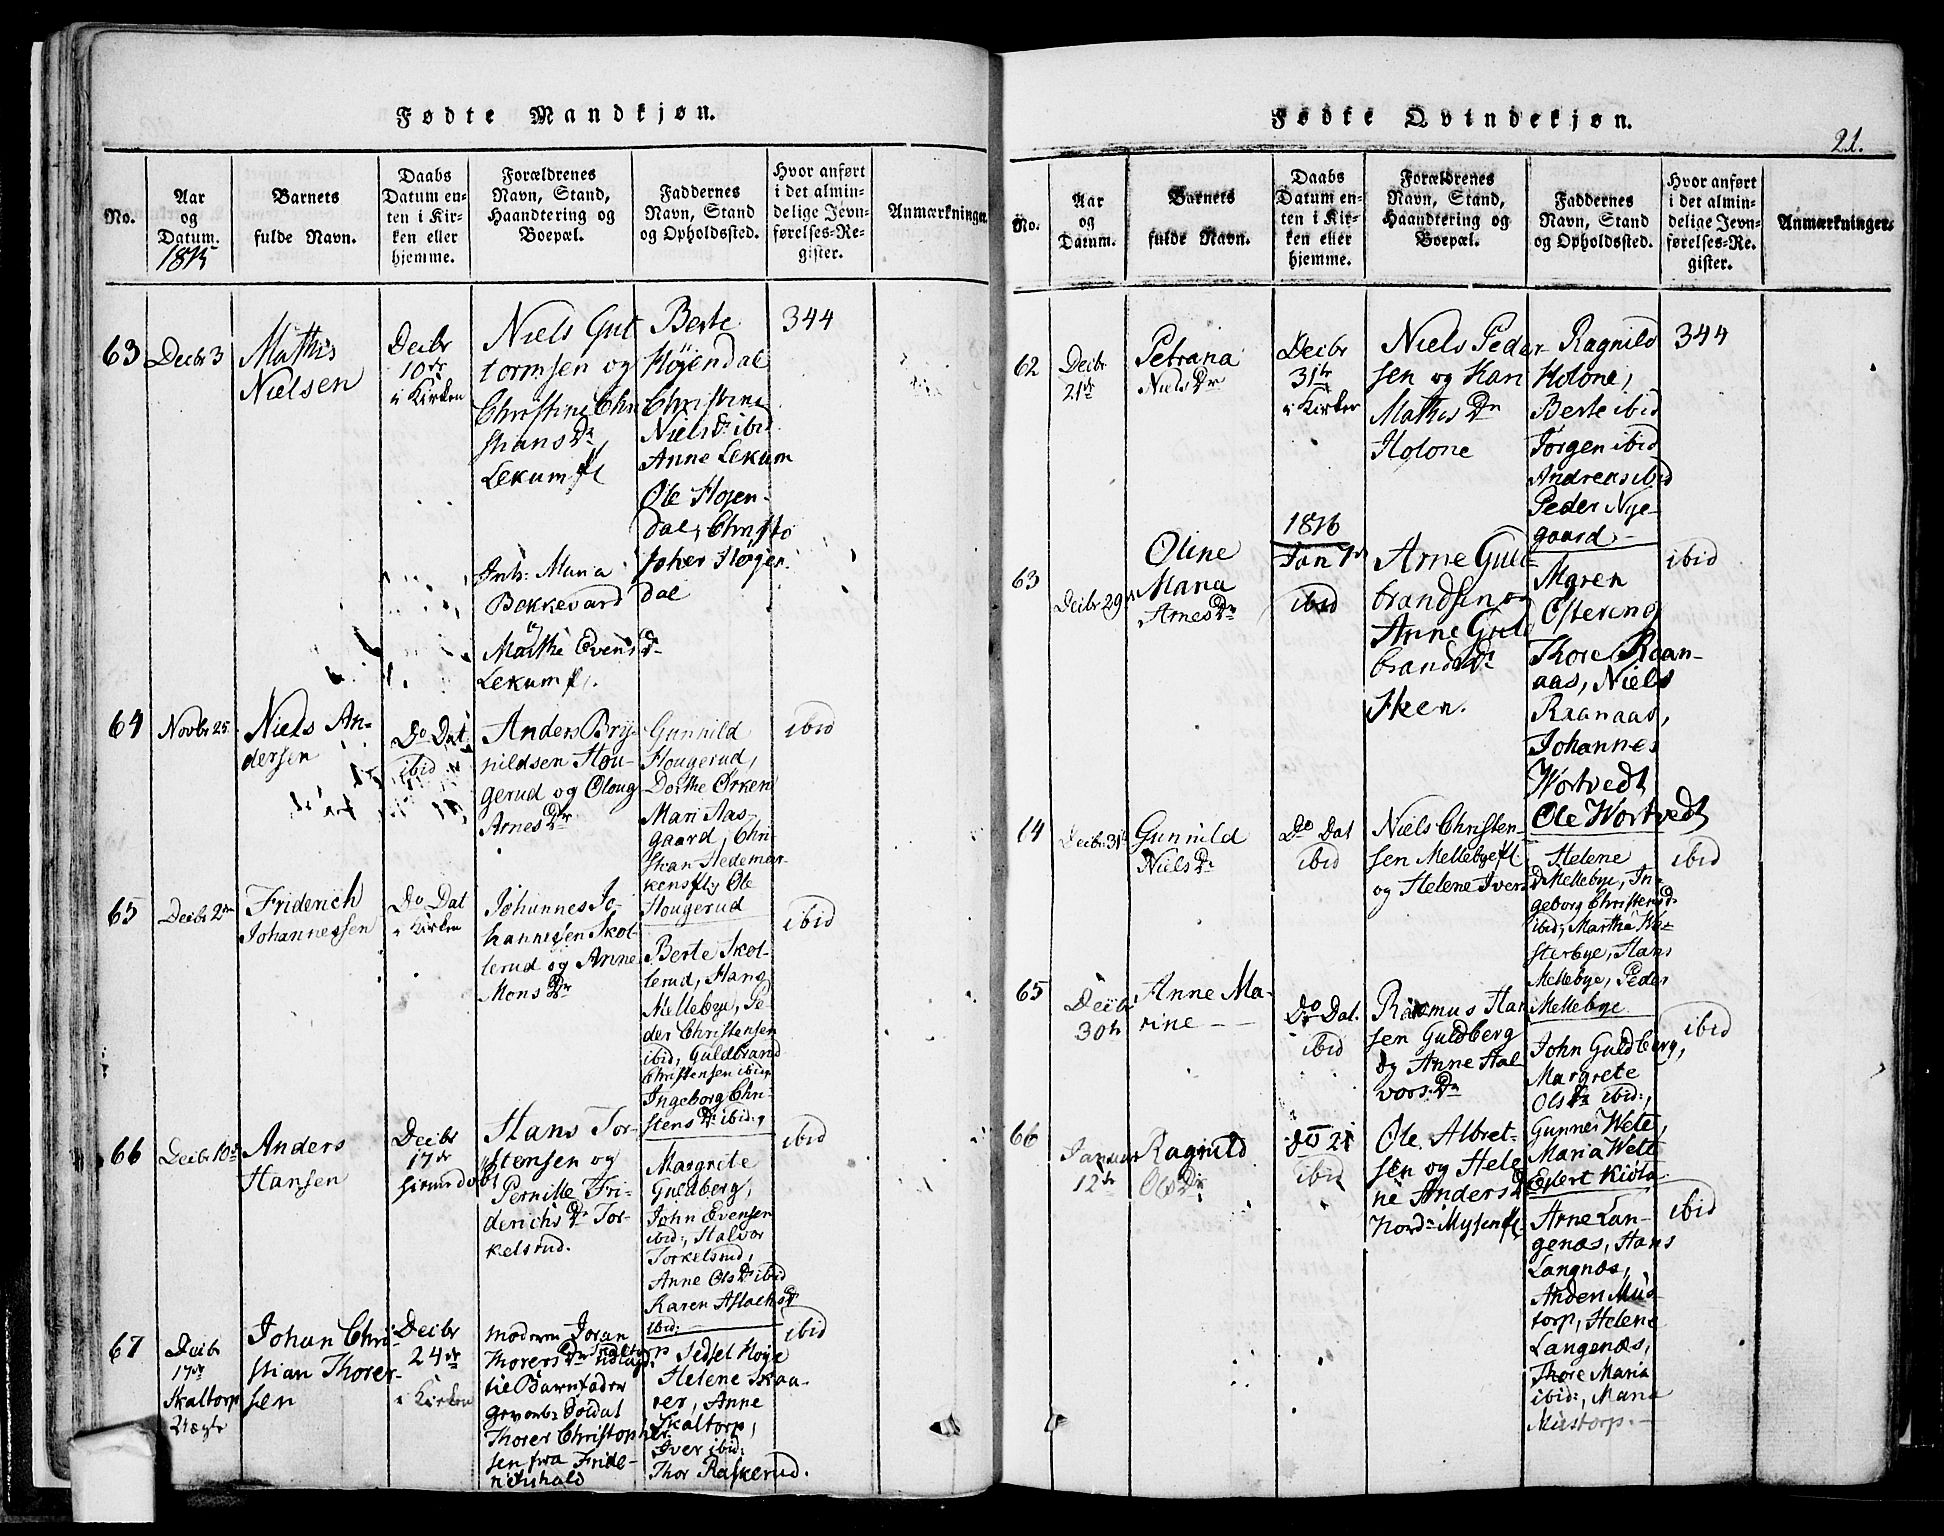 Fødte Mandkjøn.
No.
Aar
og
Datum.
1815
Barnets
fulde Navn.
Daabs
Datum en-
ten i Kir-
ken eller
hjemme.
Forældrenes
Navn, Stand,
Haandtering og
Boepæl.
Faddernes
Navn, Stand
og Opholdssted.
Hvor anført
i det almin-
delige Jevn-
førelses-Re-
gister.
Anmærkninger.
63
Decbr 3
Mathis
Nielsen
Decbr
10de
i Kirken
Niels Gut
tormsen og
Christine Chri
stians Dr
Lekum fl
Inh: Maria
Bakkevard
Marthe Evens Dr
Lekum fl.
Berte
Höjendal
Christine
Niels Dr ibid
Anne Lekum
Ole Hojen-
dal, Christo
Hojen
dal
344
64
Novbr 25
Niels An-
dersen
Do Dat
ibid
Anders Bry-
nildsen Hou-
gerud og Oloug
Arnes Dr
Gunnild
Hougerud,
Dorthe Orken
Mari Aas-
gaard, Chri
stian Hedemar-
kens fl, Ole
Hougerud
ibid
65
Decbr 2en
Friderich
Johannessen
Do Dat
i Kirken
Johannes Jo-
hannesen Skol-
lerud og Anne
Mons Dr
Berte Skol-
lerud, Hans
Mellebye, Pe-
der Christensen
ibid, Guldbrand
Christensen ibid,
Ingeborg Chri-
stens Dr ibid:,
ibid
66
Decbr 10de
Anders
Hansen
Decbr
17de
Hans Tor-
stensen og
Pernille Fri-
derichs Dr Tor-
kelsrud.
Margrete
Guldberg,
John Evensen
ibid:, Halvor
Torkelsrud,
Anne Ols Dr ibid
Karen Aslachs Dr
ibid:
ibid
67
Decbr
17de
Skaltorp
Johan Chri-
stian Thorer-
sen
Decbr
24de
i Kirken
Moderen Joran
Thorers Dr Skaltorp
Barnefader
Soldat
Thorer Christopher
sen fra Fride-
richshald
Sedsel Hoye
Helene Skaa-
rer, Anne
Skaltorp,
Iver ibid:
Thor Raskerud.
ibid
Fødte Qvindekjøn.
21.
No.
Aar
og
Datum.
Barnets
fulde Navn.
Daabs
Datum en-
ten i Kir-
ken eller
hjemme.
Forældrenes
Navn, Stand,
Haandtering og
Boepæl.
Faddernes
Navn, Stand
og Opholdssted.
Hvor anført
i det almin-
delige Jevn-
førelses-Re-
gister.
Anmærkninger.
62
Decbr
21de
Petrana
Niels Dr
Decbr
31te
i Kirken
Niels Peder-
sen og Kari
Mathis Dr
Holone
Ragnild
Holone,
Berte ibid
Jørgen ibid
Andreas ibid
Peder Nye-
gaard.-
344
63
Decbr 29
Oline
Maria
Arnes Dr
1816
Jan 7de
ibid
Arne Guld-
brandsen og
Anne Guld
brands Dr
Heen.
Maren
Ostering
Thore Raan-
aas, Niels
Raanaas,
Johannes
Wortvedt
Ole Wortvedt
ibid
14
Decbr 31te
Gunnild
Niels Dr
Do Dat
ibid
Niels Christen-
sen Mellebye fl
og Helene Ivers Dr
Helene
Mellebye, In-
geborg Christens Dr
ibid, Marthe We-
sterbye, Hans
Mellebye, Peder
Mellebye
ibid
65
Decbr
30te
Anne Ma-
rine
Do Dat.
ibid
Rasmus Han
sen Guldberg
og Anne Hal
vors Dr
John Guldberg,
Margrete
Ols Dr ibid:,
Gunner Wete,
Maria Wete
Eylert Kiøla
ibid
66
Januar
12te
Ragnild
Ols Dr
do 21
ibid
Ole Albret-
sen og Hele
ne Anders Dr
Nord: Mysen fl
Arne Lan-
genæs, Hans
Langnæs,
Anders Mus-
torp, Helene
Langenæs,
Thore Maria
ibid:, Maria
Mustorp.-
ibid